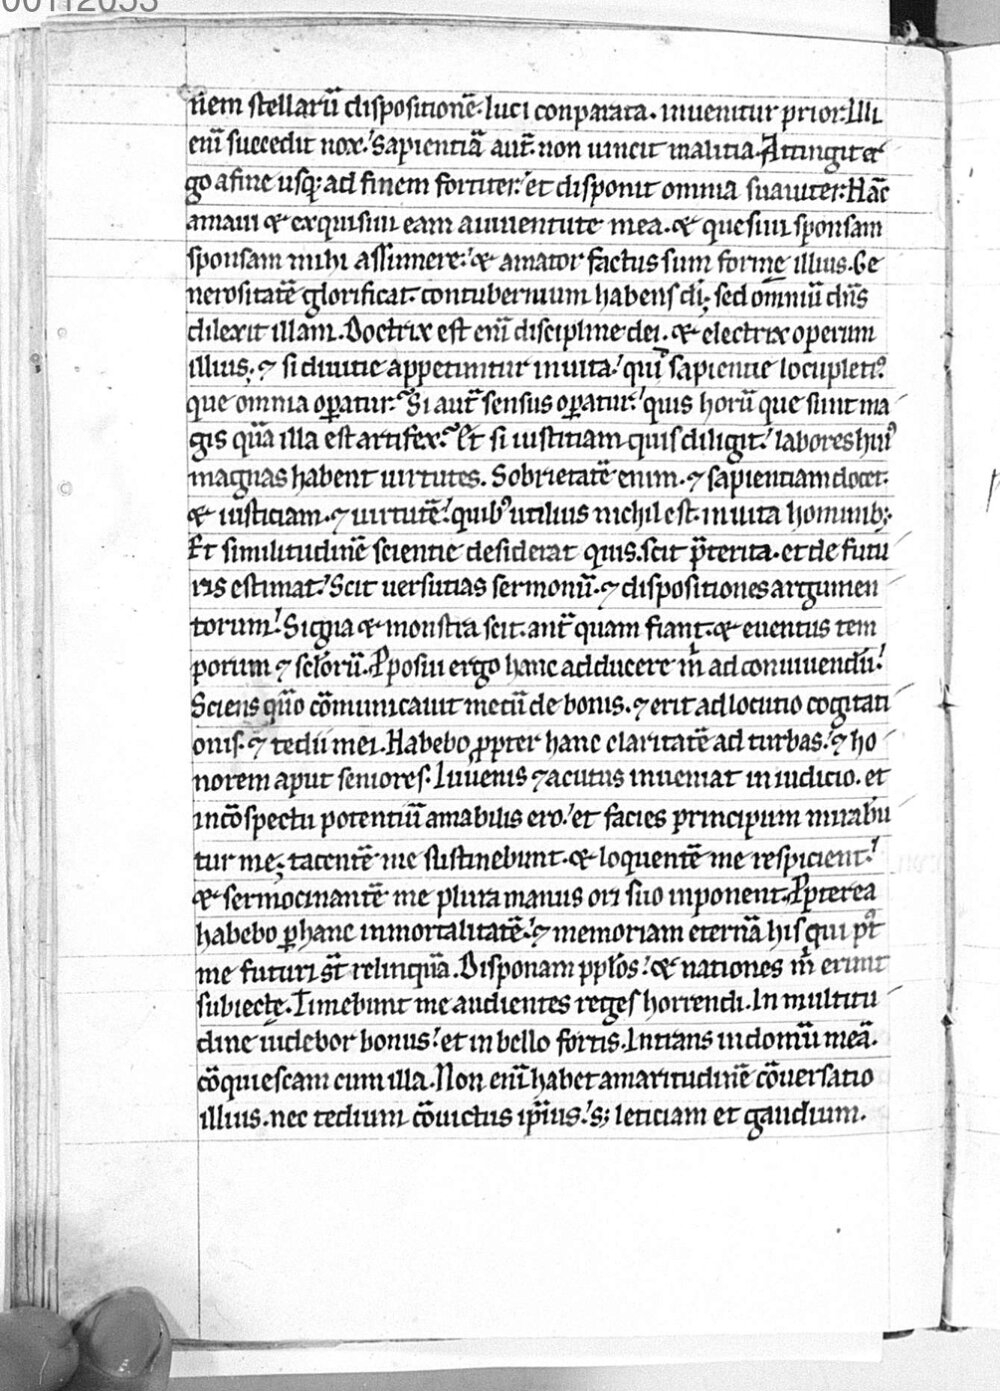 00112053
nem stellarū dispositionē. luci conparata. inuenitur prior. Illi
enī succedit nox. Sapientiā aut̄. non uincit malitia. Attingit er
go a fine usq; ad finem fortiter. et disponit omnia suauiter. Hāc
amaui & exquisiui eam a iuuentute mea. & quesiui sponsam
sponsam mihi assumere. & amator factus sum formę illius. Ge
nerositatē glorificat. contubernium habens di; sed omniū dn̄s
dilexit illam. Doctrix est enī discipline dei. & electrix operum
illius. ⁊ si diuitie appetuntur in uita. qui sapientie locupletiꝰ
que omnia oꝑatur. Si aut̄ sensus oꝑatur. quis horū que sunt ma
gis quā illa est artifex. Et si iustitiam quis diligit. labores huiꝰ
magnas habent uirtutes. Sobrietatē enim. ⁊ sapientiam docet.
& iusticiam. ⁊ uirtutē. quibꝰ utilius nichil est. in uita hominib;.
Et similitudinē scientie desiderat quis. scit p̄terita. et de futu
ris estimat. Scit uersutias sermonū. ⁊ dispositiones argumen
torum. Signa & monstra scit. ant̄ quam fiant. & euentus tem
porum ⁊ sclorū. Pposui ergo hanc adducere m̄ ad conuiuendū.
Sciens qm̄o cōmunicauit mecū de bonis. ⁊ erit adlocutio cogitati
onis. ⁊ tedii mei. Habebo ꝓpter hanc claritatē ad turbas. ⁊ ho
norem aput seniores. Iuuenis ⁊ acutus inueniar in iudicio. et
incōspectu potentiū amabilis ero. et facies principum mirabū
tur me; tacentē me sustinebunt. & loquentē me respicient.
& sermocinantē me plura manus ori suo inponent. Ppterea
habebo ꝑ hanc inmortalitatē. ⁊ memoriam eternā his qui pt̄
me futuri st̄ relinquā. Disponam pplōs. & nationes m̄ erunt
subiectę. Timebunt me audientes reges horrendi. In multitu
dine uidebor bonus. et in bello fortis. Intrans in domū meā.
cōquiescam cum illa. Non enī habet amaritudinē cōuersatio
illius. nec tedium cōuictus ip̄ius. s; leticiam et gaudium.